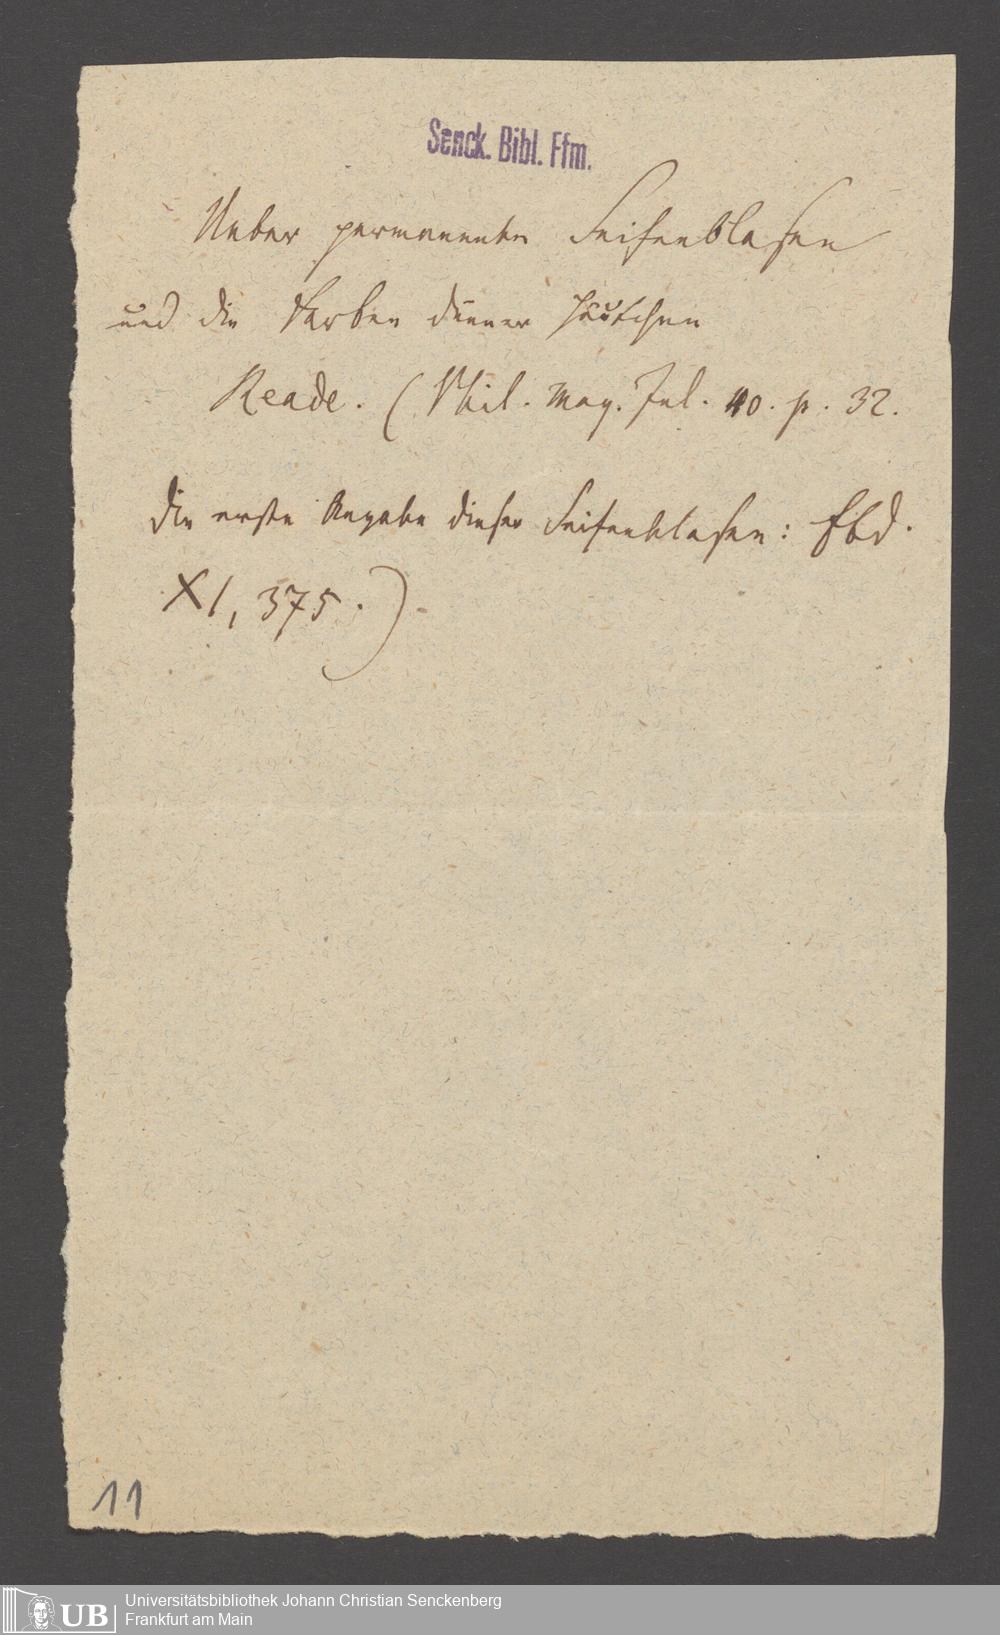 Senck. Bibl. Ffm.
Ueber permanente Seifenblasen
und die Farben dünner Häutchen
Reade. (Phil. Mag. Jul. 40. p. 32.
die erste Angabe dieser Seifenblasen: Ebd.
XI, 375.)
11
UB
Universitätsbibliothek Johann Christian Senckenberg
Frankfurt am Main